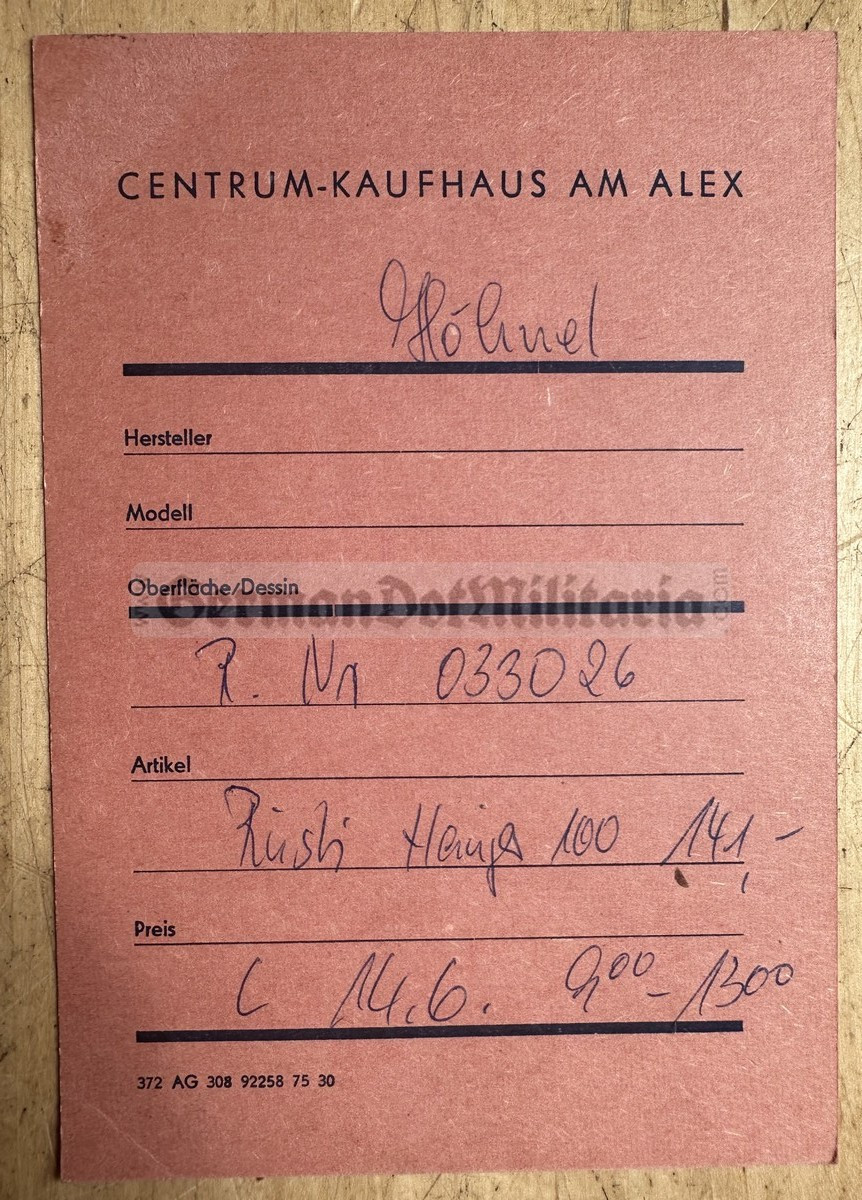 CENTRUM-KAUFHAUS AM ALEX
Höhnel
Hersteller
Modell
Oberfläche/Dessin
GermanDotMilitaria
R. Nr 033026
Artikel
100 141,-
Preis
14.6. 9⁰⁰ - 13⁰⁰
372 AG 308 92258 75 30